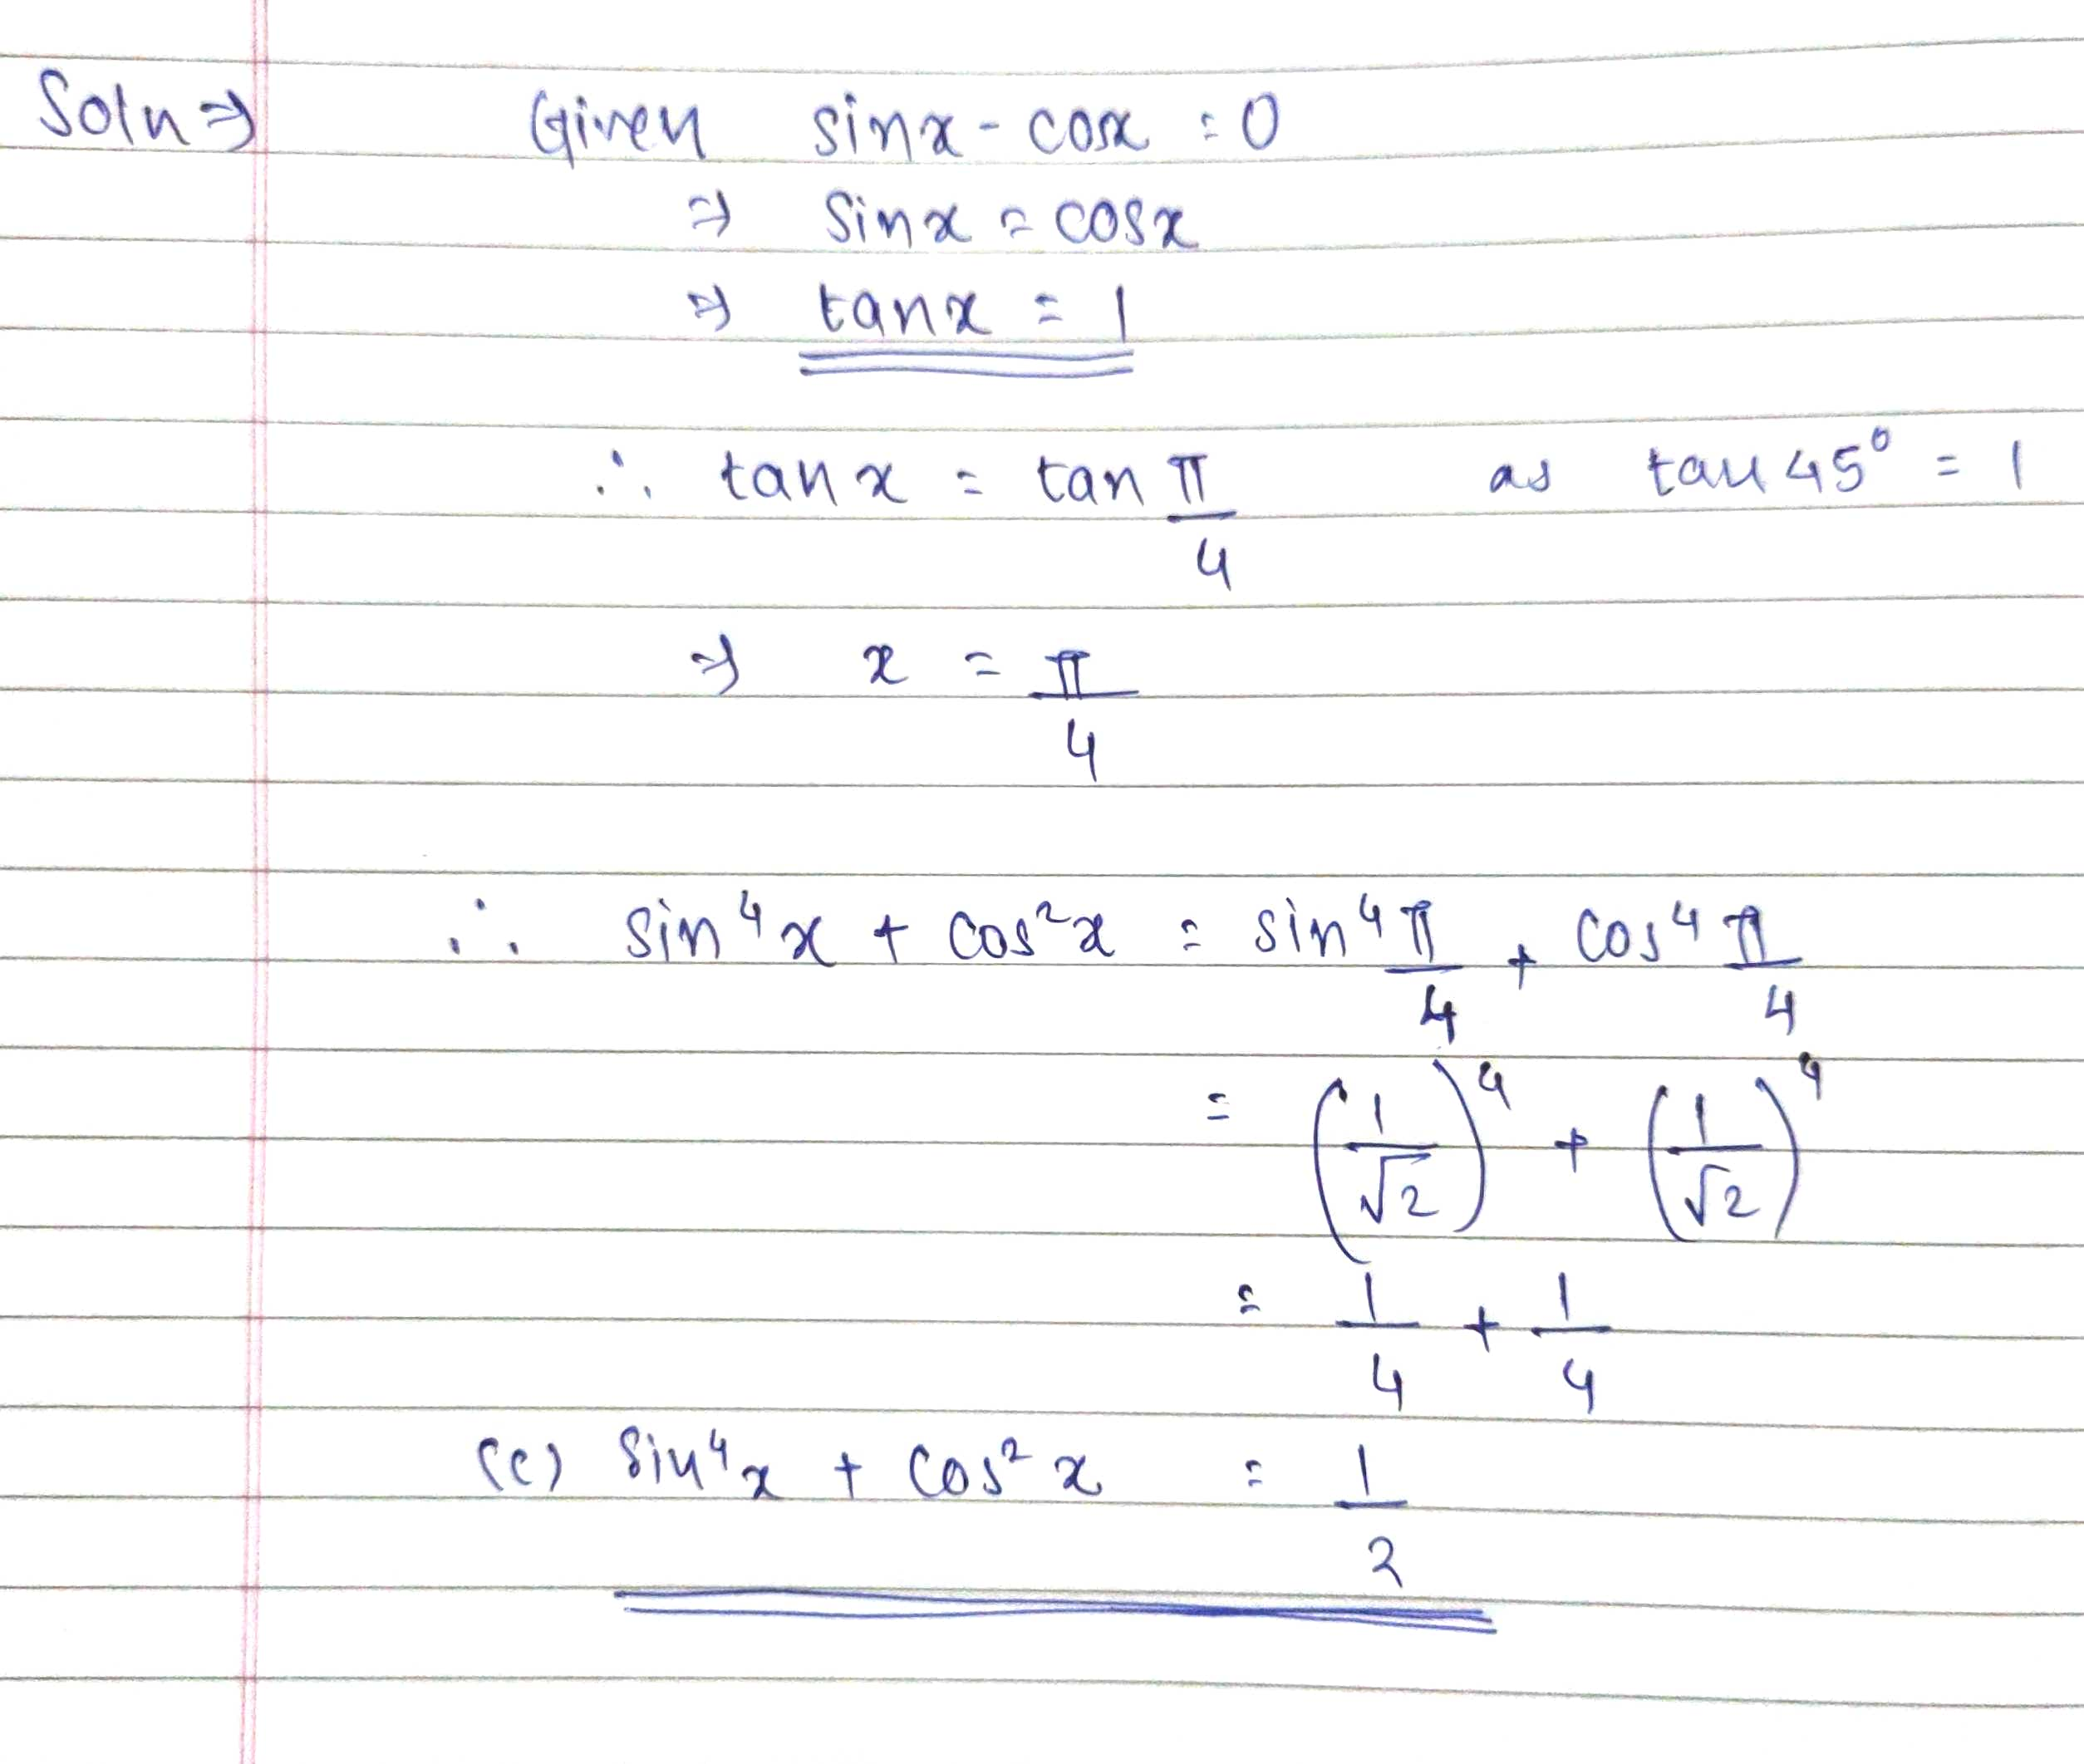 Soln ⇒ Given sinx - cosx = 0
⇒ sinx = cosx
⇒ tanx = 1
∴ tan x = tan π/4 as tan 45° = 1
⇒ x = π/4
∴ sin⁴x + cos²x = sin⁴ π/4 + cos⁴ π/4
= (1/√2)⁴ + (1/√2)⁴
= 1/4 + 1/4
(c) sin⁴x + cos²x = 1/2